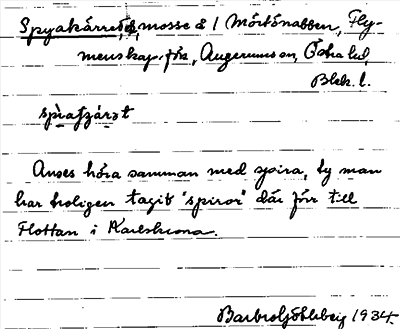 Spyakärret, mosse S 1 Mörtönabben, Fly-
menskap. fsk, Augerums sn, Östra hd,
Blek. l.
spìafzàrət
Anses höra samman med spira, ty man
har troligen tagit "spiror" där förr till
Flottan i Karlskrona.
1934.